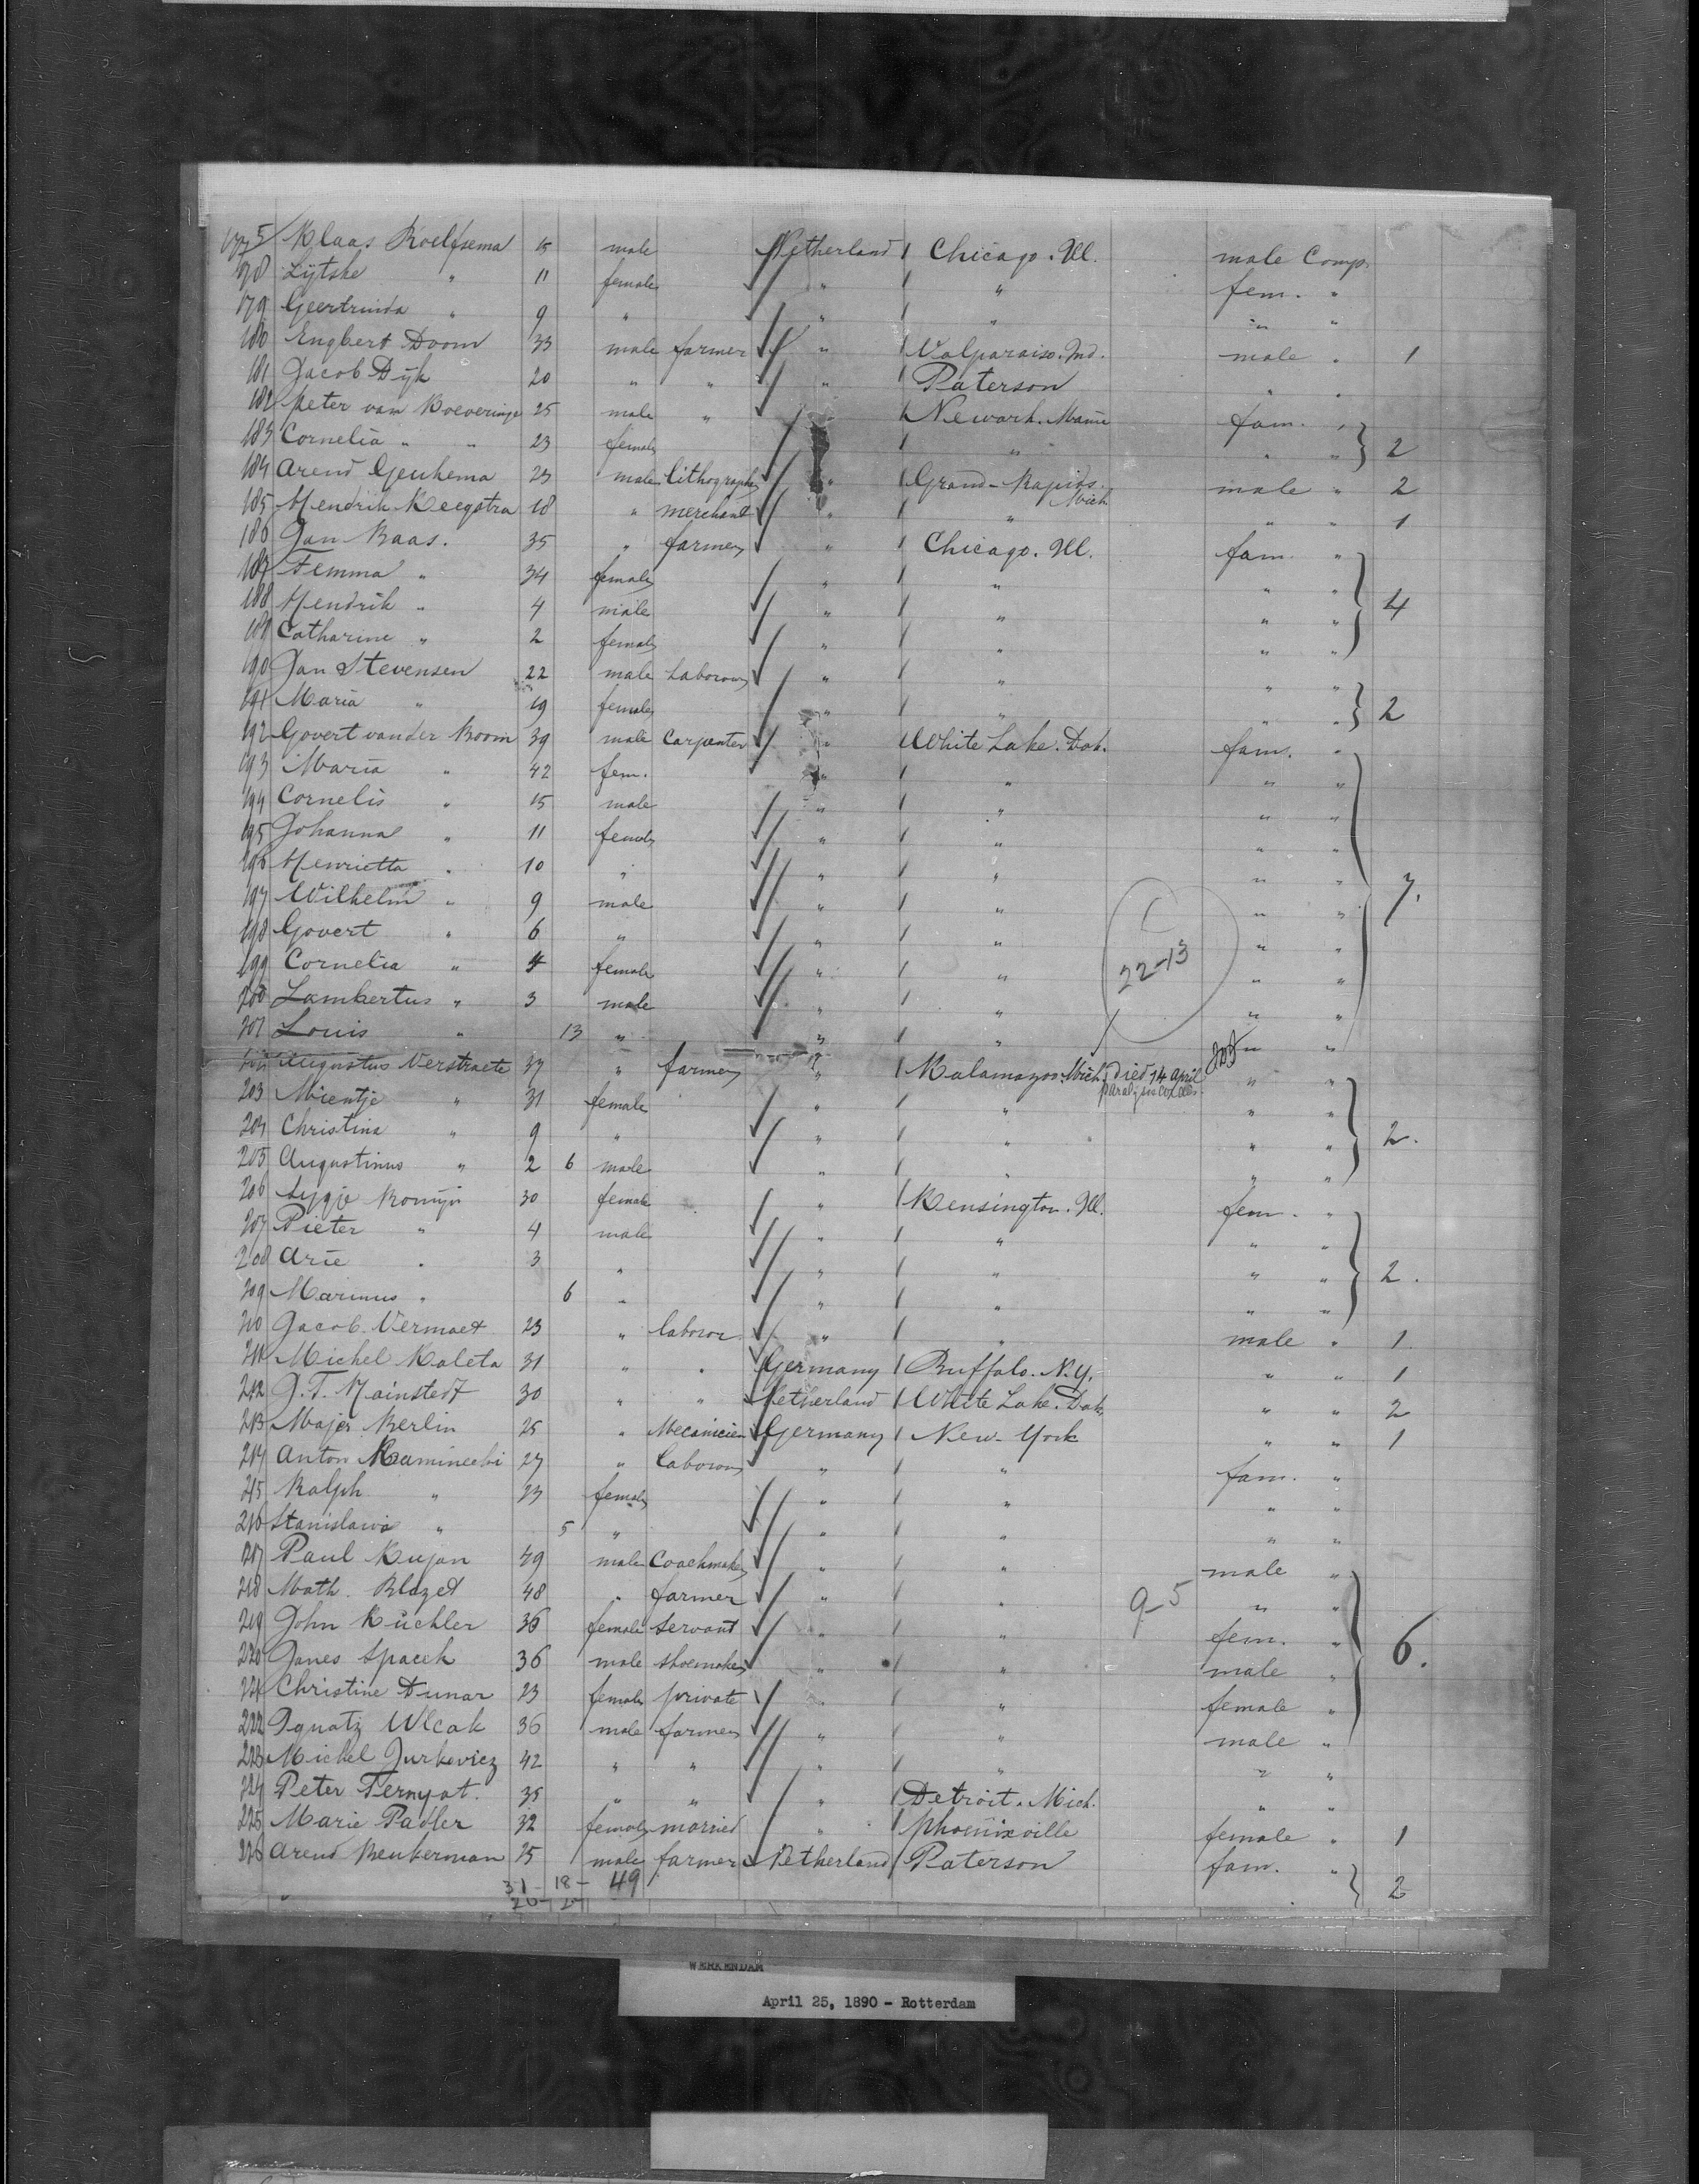 1775 Klaas Roelfsema 15 male Netherland Chicago. Ill. male Comp.
178 Lijtske " 11 female " " fem. "
179 Geertruida " 9 " " " " "
180 Engbert Doorn 33 male farmer " Valparaiso. Ind. male " 1
181 Jacob Dijk 20 " " " Paterson " "
182 Peter van Boeveringe 25 male " " Newark. fam. "
183 Cornelia " " 23 female " " " " } 2
184 Arend Geukema 23 male lithograph " Grand-Rapids. Mich male " 2
185 Hendrik Keegstra 18 " merchant " " " " 1
186 Jan Baas. 35 " farmer " Chicago. Ill. fam. "
187 Femma " 34 female " " " "
188 Hendrik " 4 male " " " " } 4
189 Catharine " 2 female " " " "
190 Jan Stevensen 22 male Laborour " " " "
191 Maria " 19 female " " " " } 2
192 Govert vander Boom 39 male Carpenter " White Lake. Dak. fam. "
193 Maria " 42 fem. " " " "
194 Cornelis " 15 male " " " "
195 Johanna " 11 female " " " "
196 Henrietta " 10 " " " " "
197 Wilhelm " 9 male " " " " } 7.
198 Govert " 6 " " " " "
199 Cornelia " 4 female " " 22-13 " "
200 Lambertus " 3 male " " " "
201 Louis " 13 " " " " "
202 Augustus Verstraete 37 " farmer " Kalamazoo. Mich. died 14 April " "
203 Mientje " 31 female " " " "
204 Christina " 9 " " " " " } 2.
205 Augustinus " 2 6 male " " " "
206 Sygje Romijn 30 female " Kensington. Ill. fem. "
207 Pieter " 4 male " " " "
208 Arie " 3 " " " " " } 2.
209 Marinus " 6 " " " " "
210 Jacob Vermaet 23 " laboror " " male " 1
211 Michel Kaleta 31 " " Germany Buffalo. N.Y. " " 1
212 J. T. Mainstedt 30 " " Netherland White Lake. Dak. " " 2
213 Majer Berlin 25 " Mecanicien Germany New-York " " 1
214 Anton Kaminecki 27 " Laborour " " fam. "
215 Ralph " 23 female " " " "
216 Stanislawa " 5 " " " " "
217 Paul Kujan 49 male Coachmaker " " male "
218 Math. Blazet 48 " farmer " " 9-5 " "
219 John Küchler 36 female servant " " fem. " } 6.
220 Janes Spacek 36 male shoemaker " " male "
221 Christine Dunar 23 female private " " female "
222 Ignatz Wlcak 36 male farmer " " male "
223 Michel Jurkeviez 42 " " " " " "
224 Peter Ternyat. 35 " " " Detroit. Mich. " "
225 Marie Padler 32 female married " Phoenixville female " 1
226 Arend Beukerman 25 male farmer Netherland Paterson fam. " } 2
31- 18- 49
26- 24
WERKENDAM
April 25, 1890 - Rotterdam